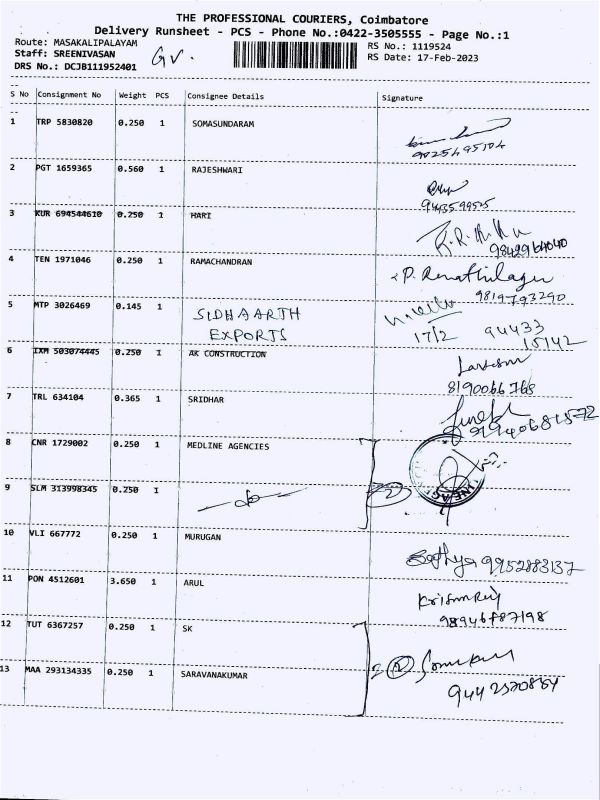 THE PROFESSIONAL COURIERS, Coimbatore
Delivery Runsheet - PCS - Phone No.:0422-3505555 - Page No.:1
Route: MASAKALIPALAYAM
RS No.: 1119524
Staff: SREENIVASAN
RS Date: 17-Feb-2023
DRS No.: DCJB111952401
S No Consignment No Weight PCS Consignee Details Signature
1 TRP 5830820 0.250 1 SOMASUNDARAM
9025495104
2 PGT 1659365 0.560 1 RAJESHWARI
3 KUR 694544610 0.250 1 HARI
4 TEN 1971046 0.250 1 RAMACHANDRAN
9819793290
5 MTP 3026469 0.145 1 SIDHAARTH
EXPORTS
17/2 94433
15142
6 IXM 503074445 0.250 1 AK CONSTRUCTION
8190066768
7 TRL 634104 0.365 1 SRIDHAR
8 CNR 1729002 0.250 1 MEDLINE AGENCIES
9 SLM 313998345 0.250 1
10 VLI 667772 0.250 1 MURUGAN
Sathya 9952883137
11 PON 4512601 3.650 1 ARUL
12 TUT 6367257 0.250 1 SK
13 MAA 293134335 0.250 1 SARAVANAKUMAR
9442520854